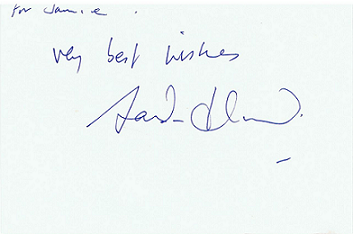 For Jamie.
very best wishes